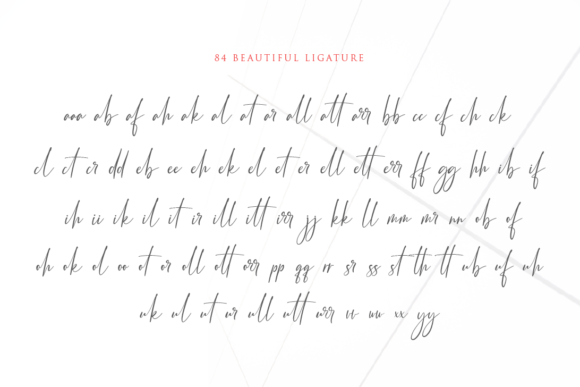 84 BEAUTIFUL LIGATURE
aaa ab af ah ak al at ar all att arr bb cc cf ch ck
cl ct cr dd eb ee eh ek el et er ell ett err ff gg hh ib if
ih ii ik il it ir ill itt irr jj kk ll mm mr nn ob of
oh ok ol oo ot or oll ott orr pp qq rr sr ss st th tt ub uf uh
uk ul ut ur ull utt urr vv ww xx yy